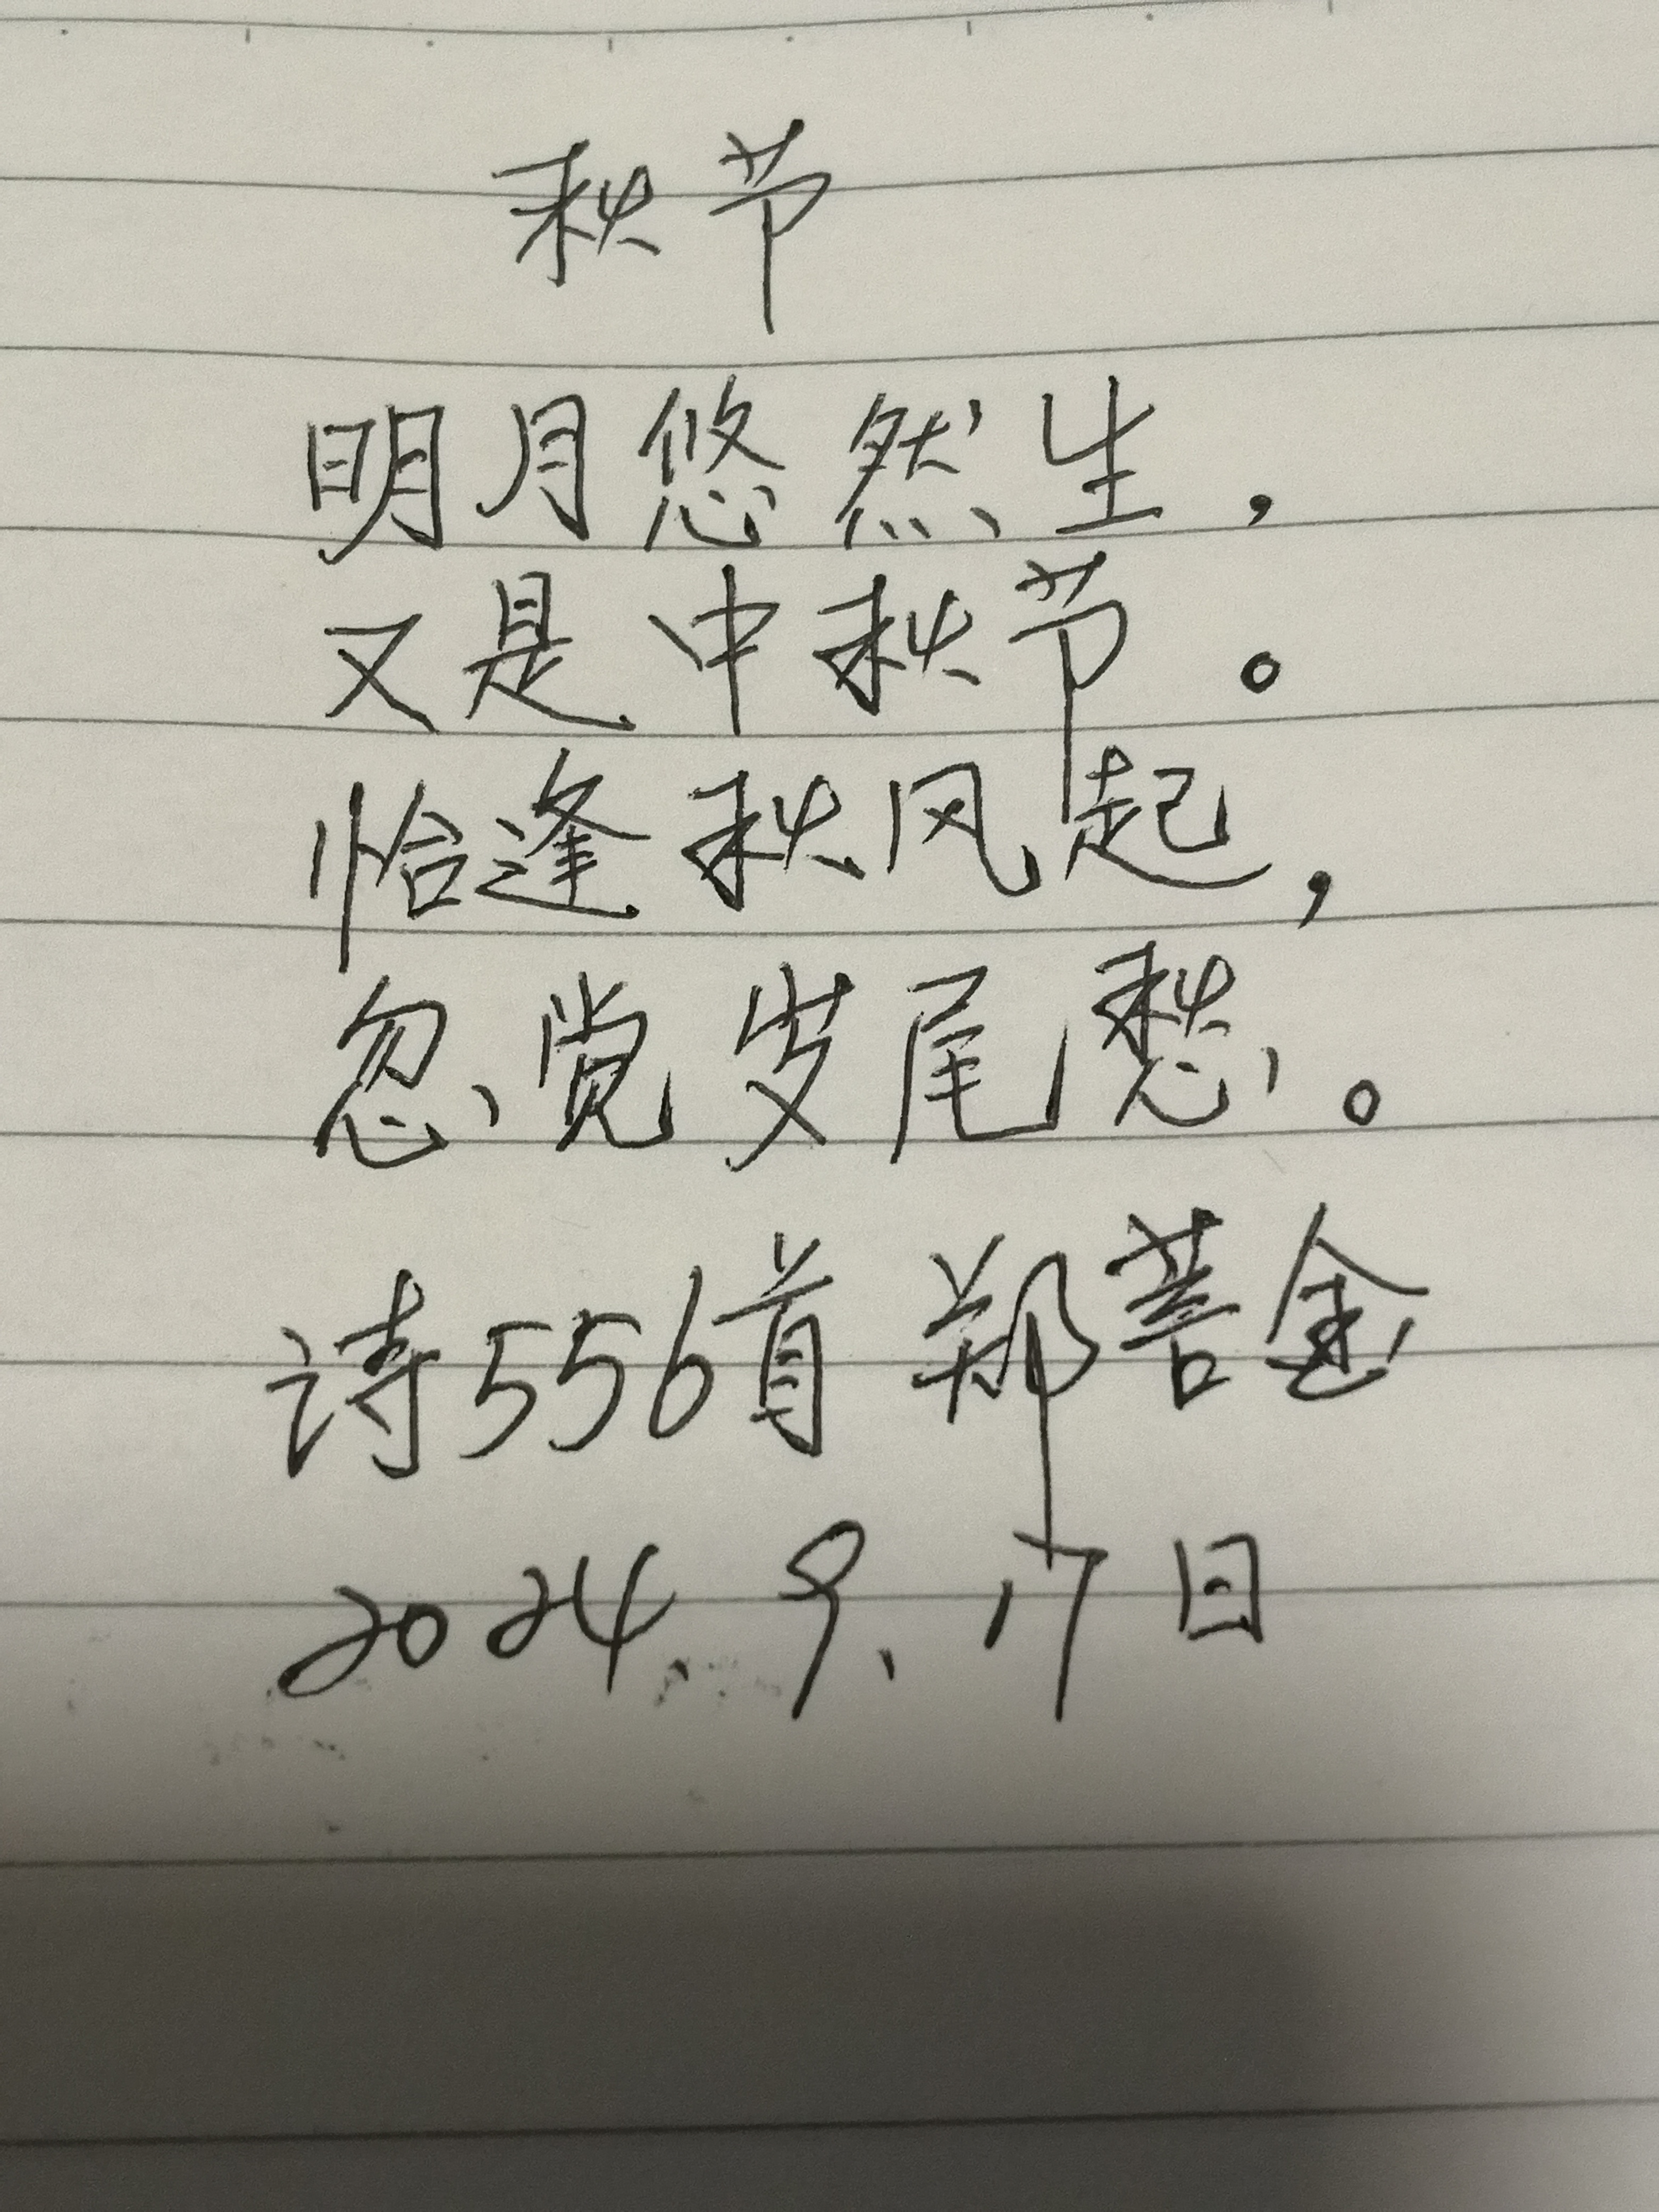 秋节
明月悠然生，
又是中秋节。
恰逢秋风起，
忽觉岁尾愁。
诗556首 郑菩金
2024.9.17日